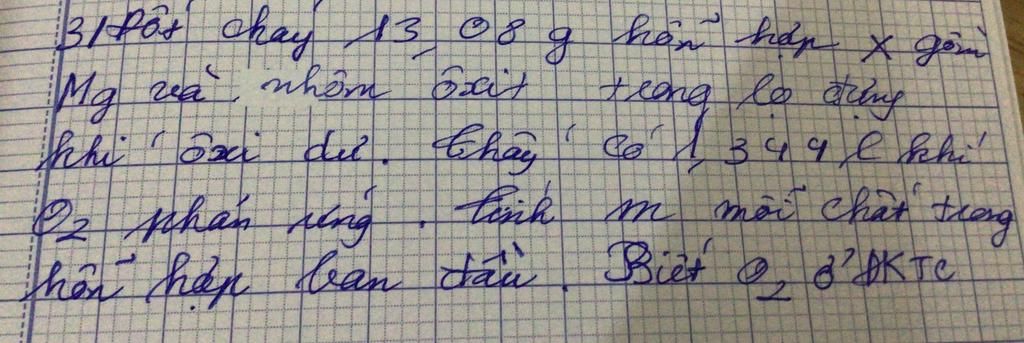 3/ Đốt cháy 13,08 g hỗn hợp X gồm
Mg và nhôm ôxit trong lọ đựng
khí ôxi dư. thấy có 1,344 l khí
O2 phản ứng. tính m mỗi chất trong
hỗn hợp ban đầu. Biết O2 ở ĐKTC